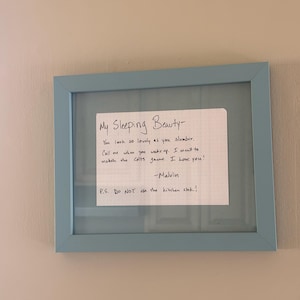 My Sleeping Beauty-
You look so lovely as you slumber.
Call me when you wake up. I want to
watch the Colts game. I love you!
-Melvin
P.S. DO NOT use the kitchen sink!